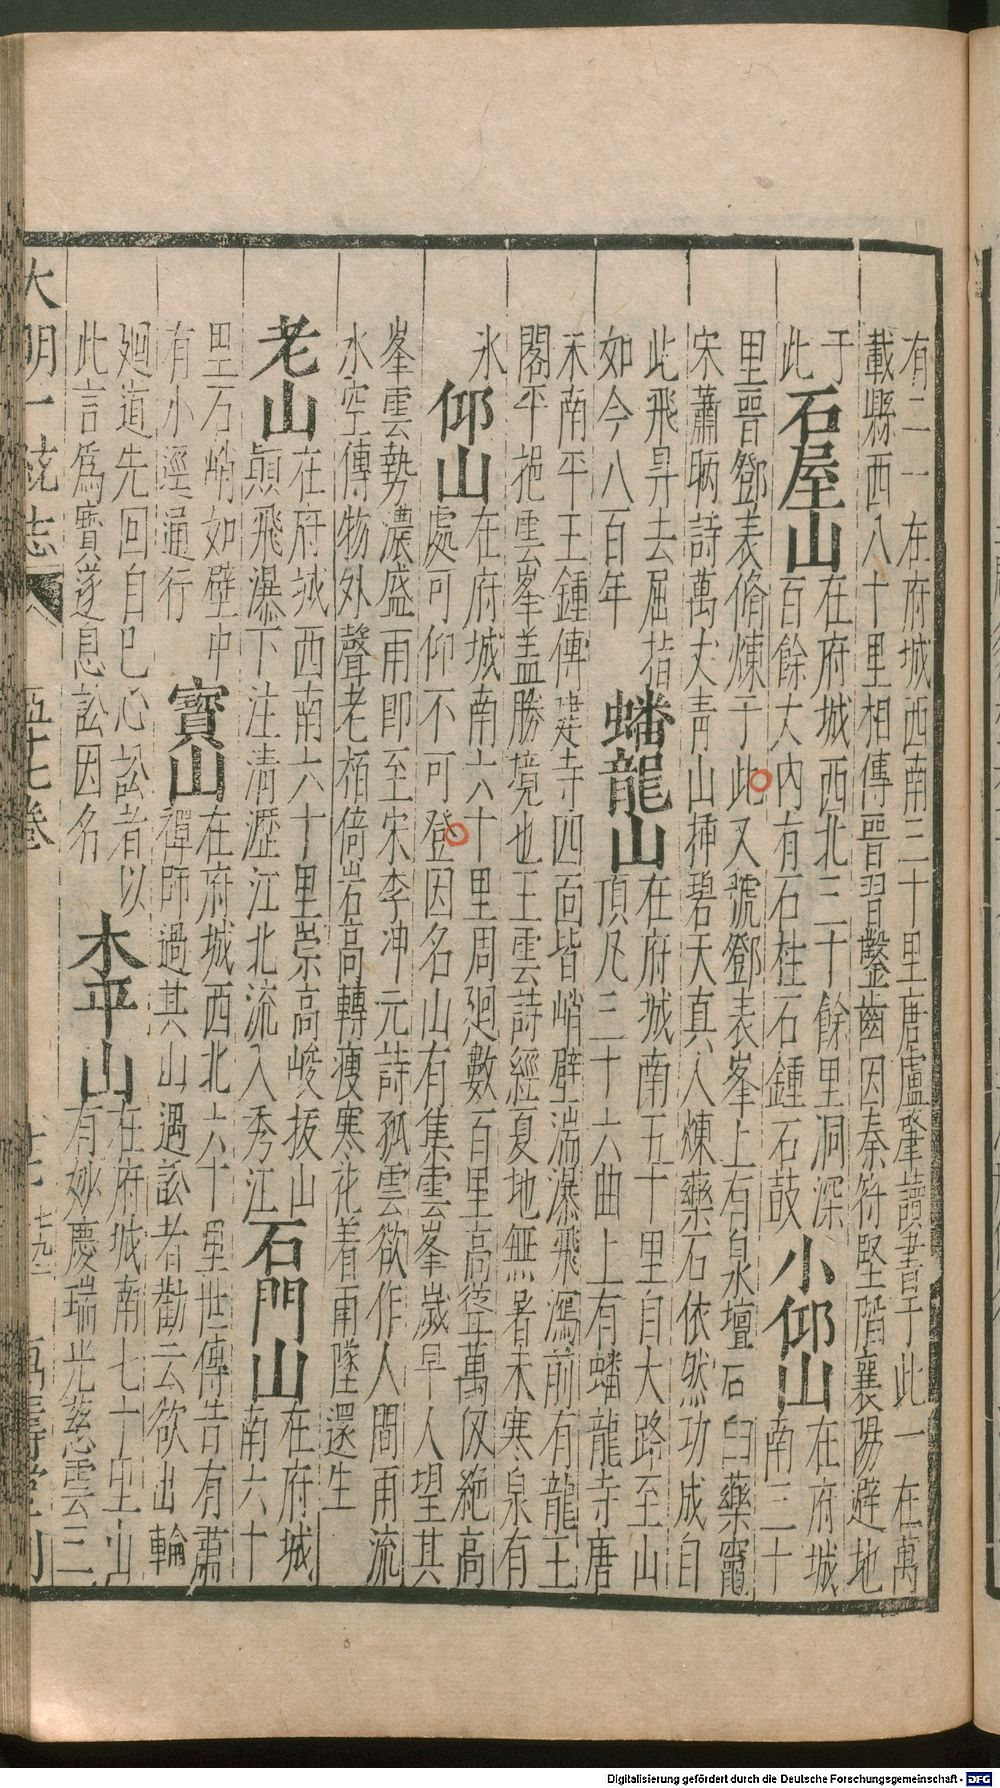 有二一在府城西南三十里唐盧肇讀書于此一在萬
載縣西八十里相傳晉習鑿齒因秦符堅階襄陽避地
于
此
石屋山
在府城西北三十餘里洞深
百餘丈內有石柱石鍾石鼓
小仰山
在府城
南三十
里晉鄧表脩煉于此又號鄧表峯上有泉壇石臼藥竈
宋蕭昞詩萬丈青山揷碧天真人煉藥石依然功成自
此飛昇去屈指
如今八百年
蟠龍山
在府城南五十里自大路至山
頂凡三十六曲上有蟠龍寺唐
末南平王鍾傳建寺四面皆峭壁湍瀑飛瀉前有龍王
閣平挹雲峯盖勝境也王雲詩經夏地無暑未寒泉有
氷
仰山
在府城南六十里周廻數百里高聳萬仞絶高
處可仰不可登因名山有集雲峯歲旱人望其
峯雲勢濃盛雨即至宋李冲元詩孤雲欲作人間雨流
水空傳物外聲老栢倚岩高轉瘦寒花着雨墜還生
老山
在府城西南六十里崇高峻拔山
顛飛瀑下注清瀝江北流入秀江
石門山
在府城
南六十
里石峭如壁中
有小徑通行
寳山
在府城西北六十里世傳告有蕭
禪師過其山遇訟者勸云欲出輪
廻道先回自己心訟者以
此言爲寳遂息訟因名
木平山
在府城南七十里山
有妙慶瑞光慈雲三
大明一統志
五十七卷